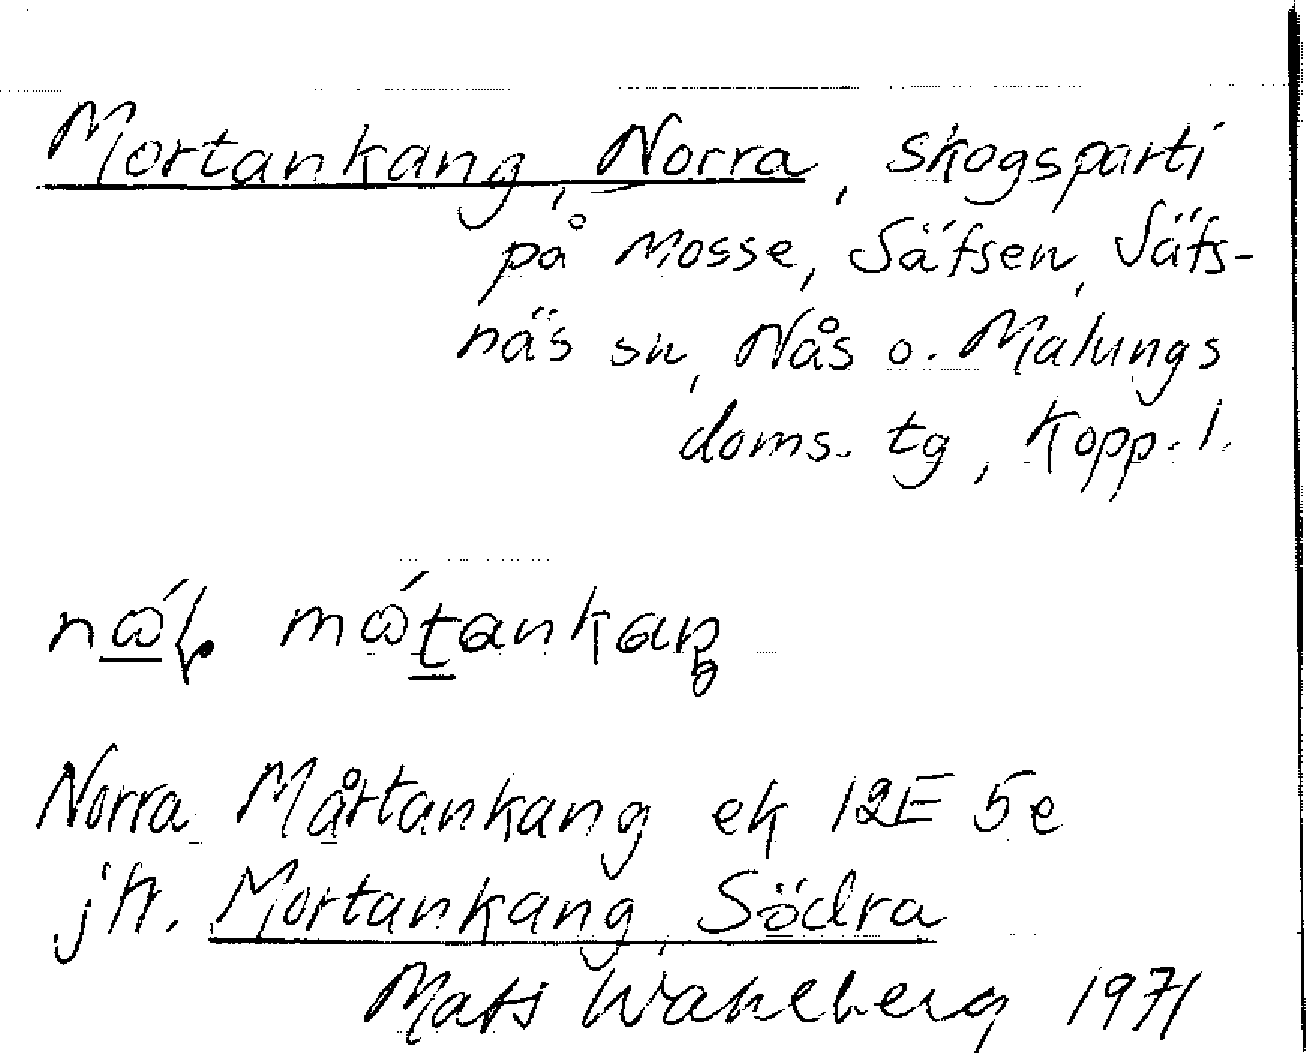 Mortankang, Norra, skogsparti
på mosse, Säfsen, Säfs-
näs sn, Nås o. Malungs
doms. tg, Kopp. l.
Norra Mårtankang ek 12E 5e
jfr. Mortankang, Södra
Mats Wahlberg 1971